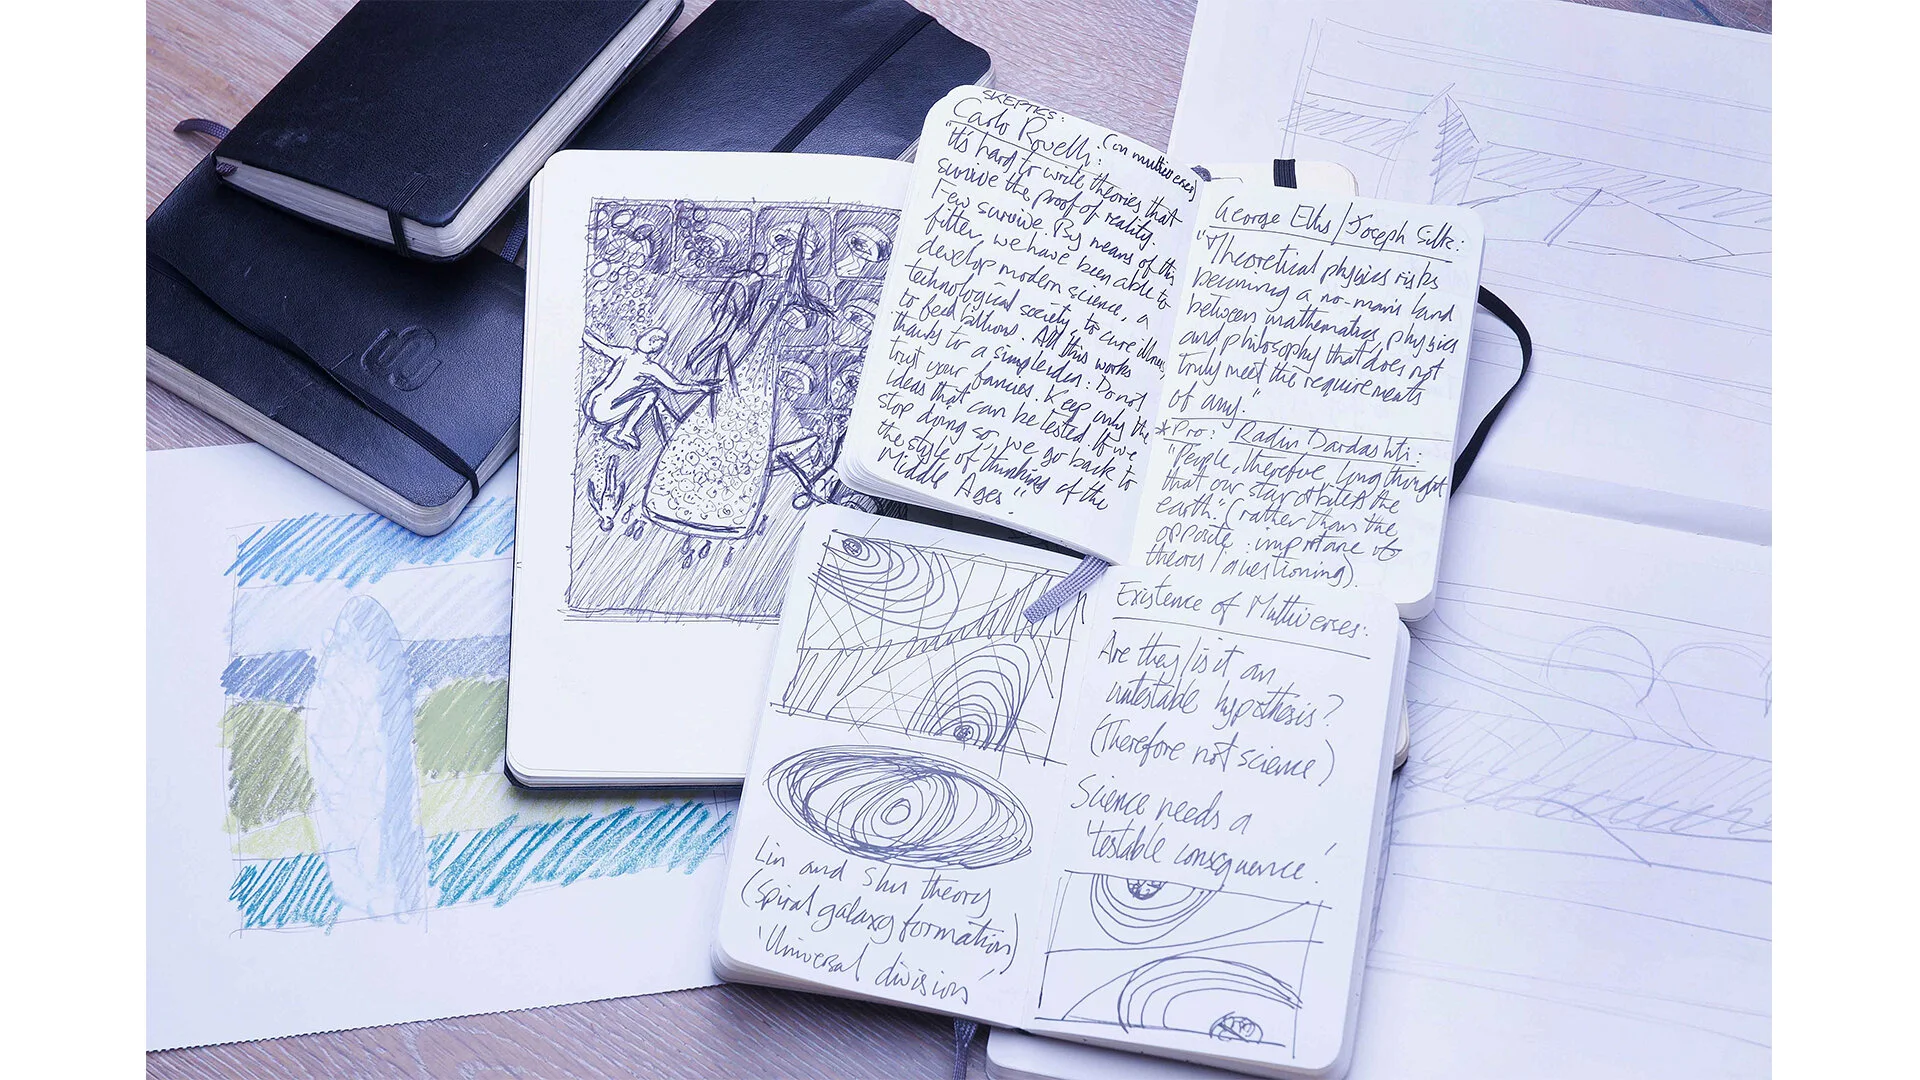 SKEPTICS:
Carlo Rovelli: (on multiverses)
"It's hard to write theories that
survive the proof of reality.
Few survive. By means of this
filter, we have been able to
develop modern science, a
technological society, to cure illness,
to feed billions. All this works
thanks to a simple idea: Do not
trust your fancies. Keep only the
ideas that can be tested. If we
stop doing so, we go back to
the style of thinking of the
Middle Ages".
George Ellis/Joseph Silk:
"Theoretical physics risks
becoming a no-mans land
between mathematics, physics
and philosophy that does not
truly meet the requirements
of any."
*Pro: Radin Dardashti:
"People, therefore, long thought
that our star orbited the
earth." (rather than the
opposite: importance of
theory/questioning).
Lin and Shu theory
(spiral galaxy formation)
'Universal division'
Existence of Multiverses:
Are they/is it an
untestable hypothesis?
(Therefore not science)
Science needs a
'testable consequence'!